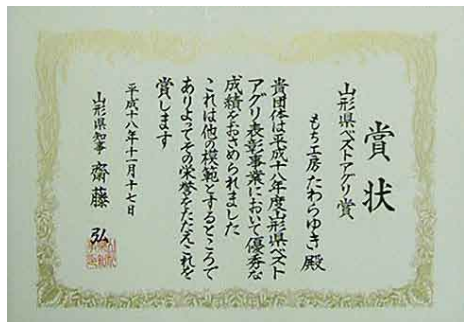 賞状
山形県ベストアグリ賞
もち工房たわらゆき 殿
貴団体は平成十八年度山形県ベスト
アグリ表彰事業において優秀な
成績をおさめられました
これは他の模範とするところで
ありよってその栄誉をたたえこれを
賞します
平成十八年十一月十七日
山形県知事 齋藤 弘